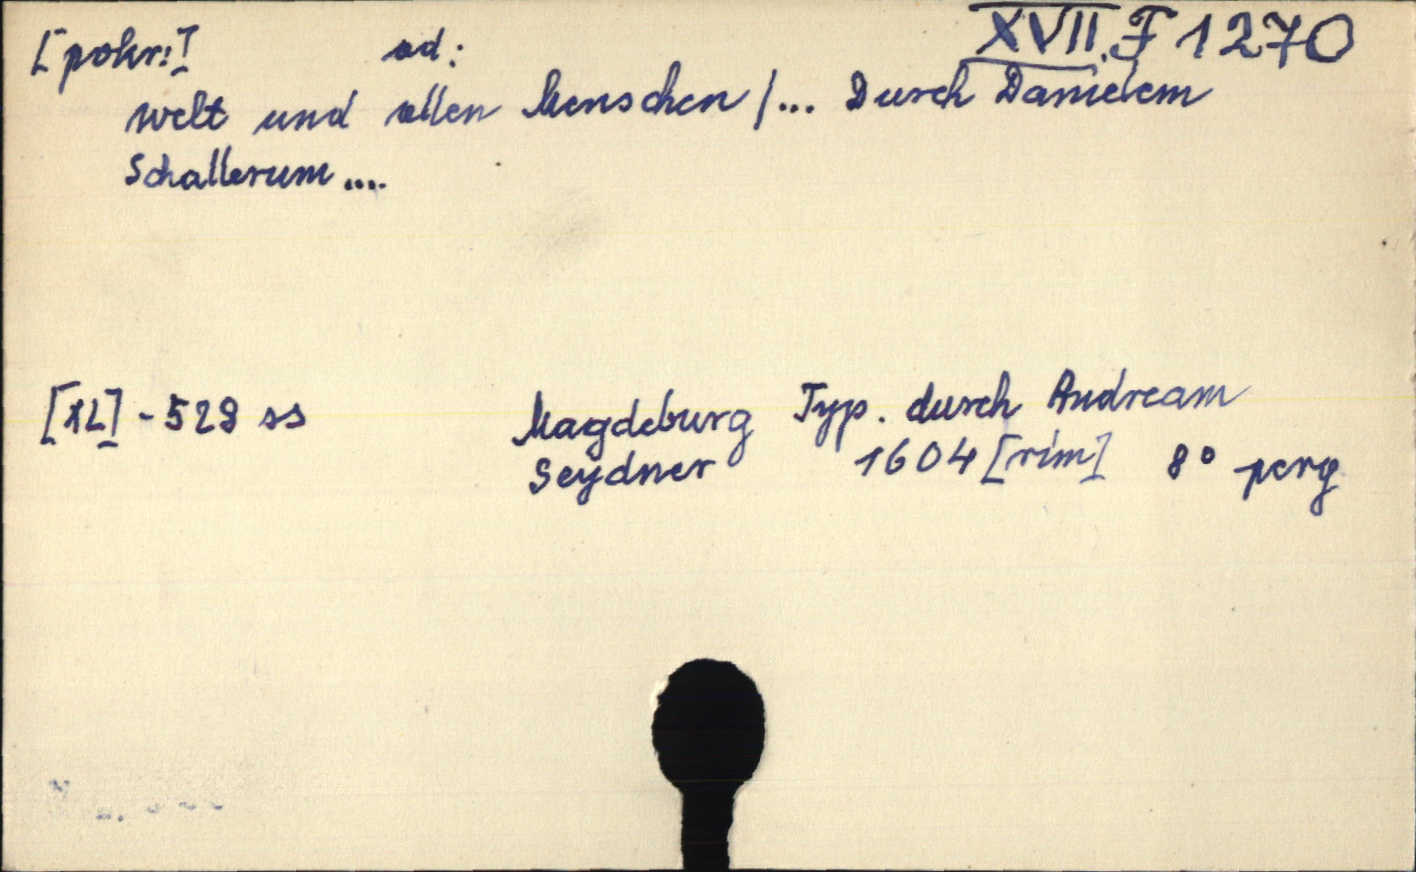 XVII.F 1270
[pokr.] ad:
welt und allen Menschen /... Durch Danielem
Schallerum ....
[XL] - 528 ss Magdeburg Typ. durch Andream
Seydner 1604 [rim] 8° perg